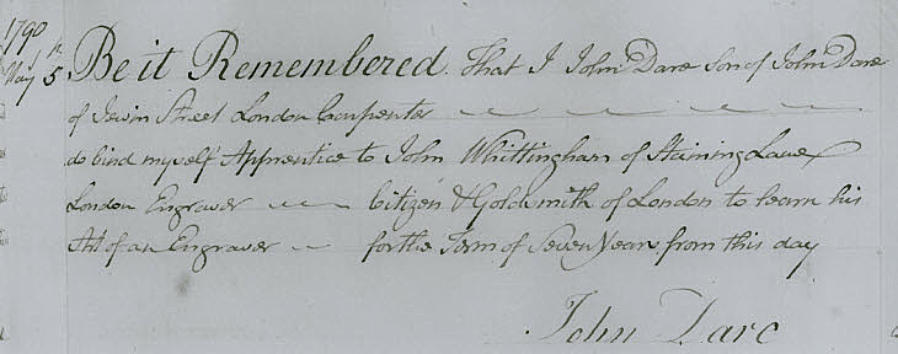 1790
May 5th
Be it Remembered. That I John Dare Son of John Dare
of Jewin Street London Carpenter
do bind myself Apprentice to John Whittingham of Staining Lane
London Engraver Citizen & Goldsmith of London to learn his
Art of an Engraver for the Term of Seven Years from this day
John Dare